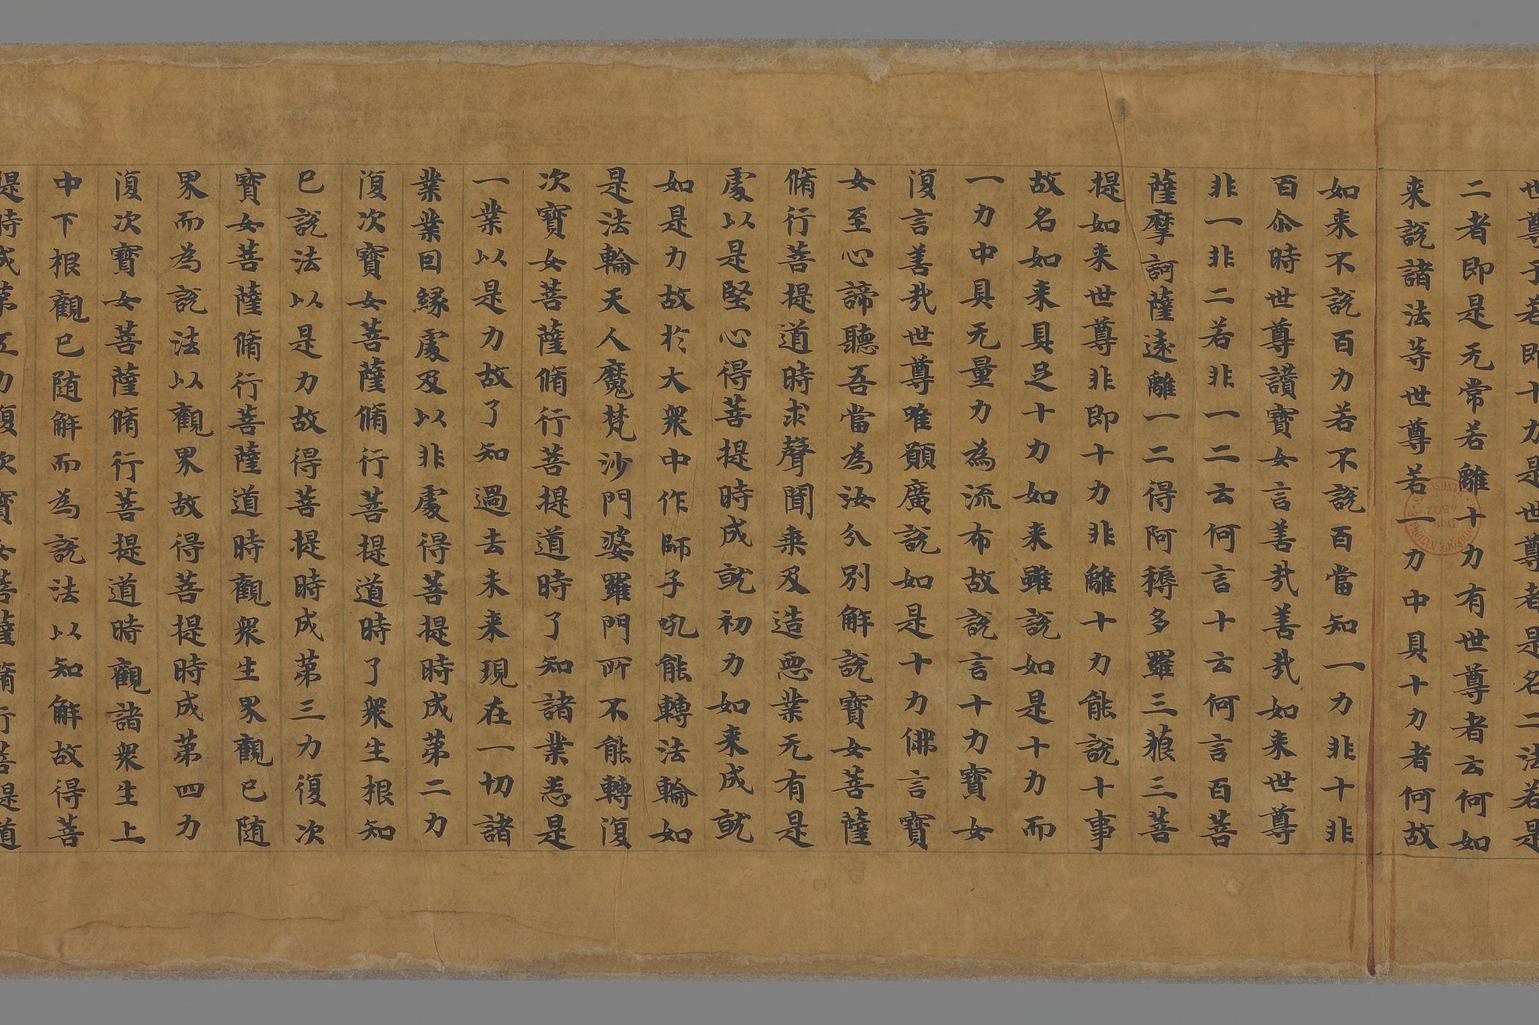 世尊予若即十力是世尊者是名二法若是
二者即是无常若離十力有世尊者云何如
来說諸法等世尊若一力中具十力者何故
如来不說百力若不說百當知一力非十非
百尒時世尊讚寶女言善㢤善㢤如来世尊
非一非二若非一二云何言十云何言百菩
薩摩訶薩遠離一二得阿耨多羅三藐三菩
提如来世尊非即十力非離十力能說十事
故名如来具足十力如来雖說如是十力而
一力中具无量力為流布故說言十力寶女
復言善㢤世尊唯願廣說如是十力佛言寶
女至心諦聽吾當為汝分別解說寶女菩薩
脩行菩提道時求聲聞乗及造惡業无有是
處以是堅心得菩提時成就初力如来成就
如是力故於大衆中作師子吼能轉法輪如
是法輪天人魔梵沙門婆羅門所不能轉復
次寶女菩薩脩行菩提道時了知諸業悉是
一業以是力故了知過去未来現在一切諸
業業因緣處及以非處得菩提時成第二力
復次寶女菩薩脩行菩提道時了衆生根知
已說法以是力故得菩提時成第三力復次
寶女菩薩脩行菩薩道時觀衆生界觀已随
界而為說法以觀界故得菩提時成第四力
復次寶女菩薩脩行菩提道時觀諸衆生上
中下根觀已随解而為說法以知解故得菩
提時成第五力復次寶女菩薩脩行菩提道